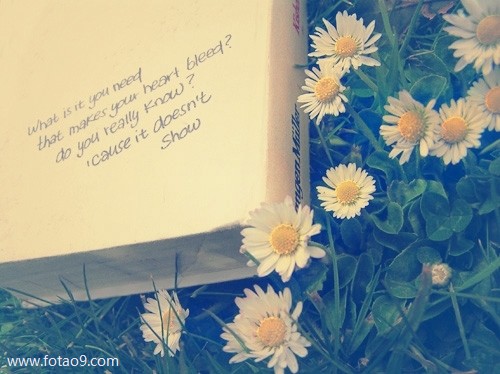 What is it you need
that makes your heart bleed?
do you really know?
'cause it doesn't
show
www.fotao9.com